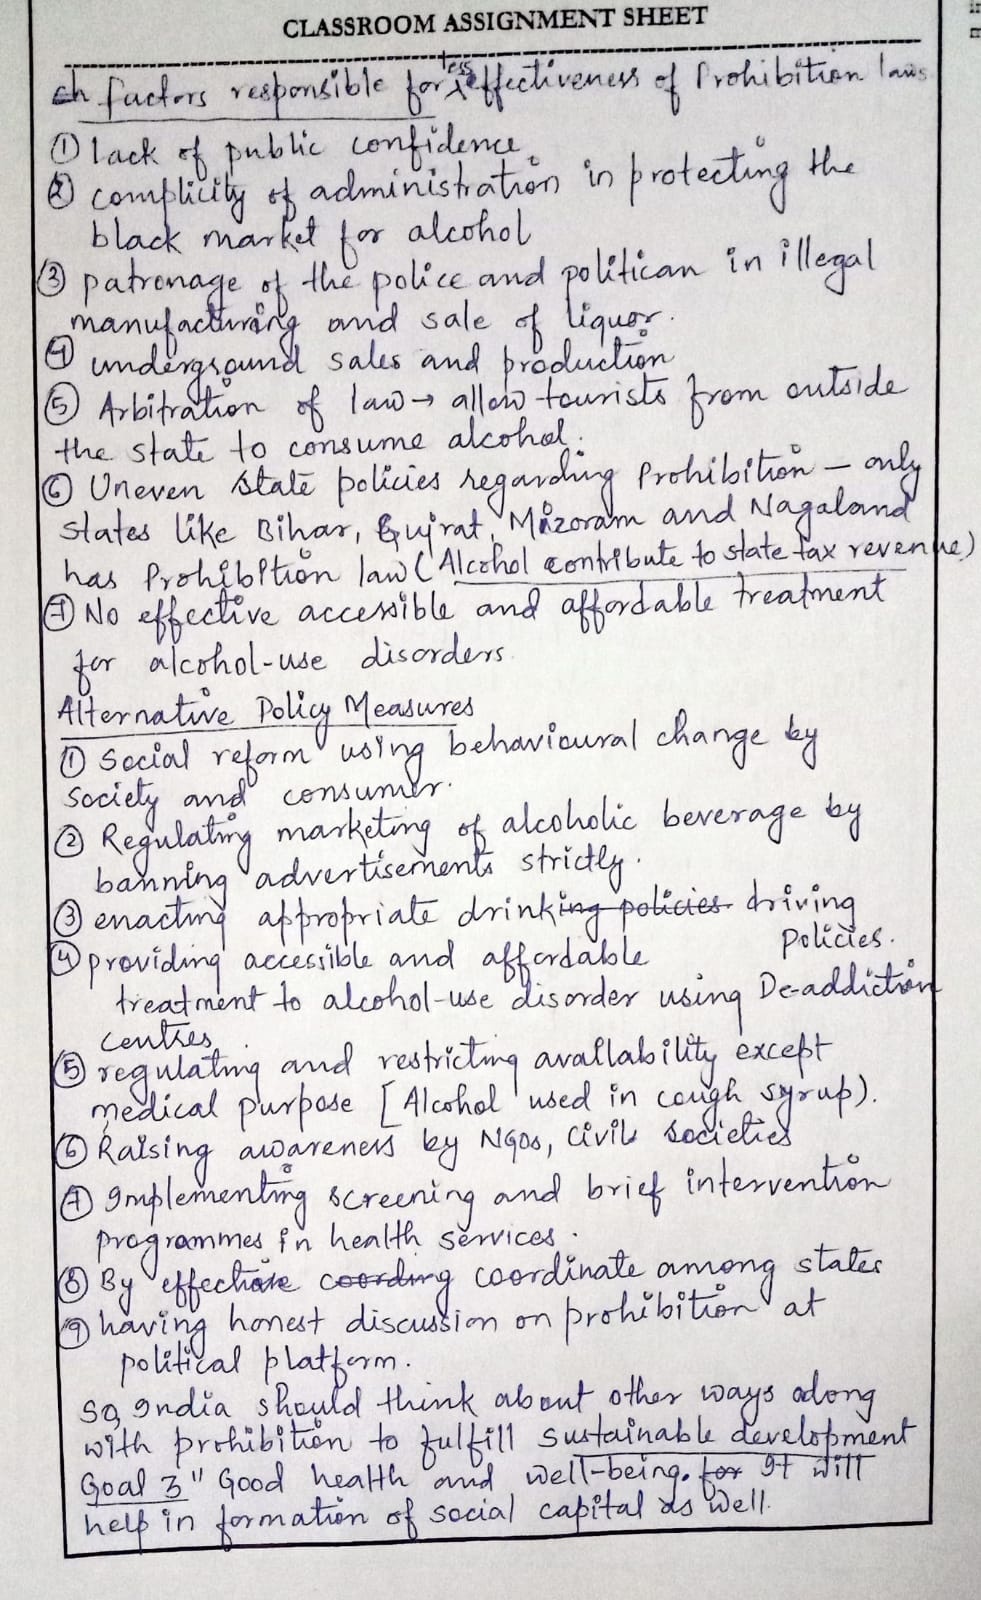 CLASSROOM ASSIGNMENT SHEET
factors responsible for less effectiveness of Prohibition laws
① lack of public confidence
② complicity of administration in protecting the
black market for alcohol
③ patronage of the police and politican in illegal
manufacturing and sale of liquor.
④ underground sales and production
⑤ Arbitration of law → allow tourists from outside
the state to consume alcohol.
⑥ Uneven state policies regarding Prohibition – only
states like Bihar, Gujrat, Mizoram and Nagaland
has Prohibition law (Alcohol contribute to state tax revenue)
⑦ No effective accessible and affordable treatment
for alcohol-use disorders
Alternative Policy Measures
① Social reform using behavioural change by
society and consumer.
② Regulating marketing of alcoholic beverage by
banning advertisements strictly.
③ enacting appropriate drinking policies driving
policies.
④ providing accessible and affordable
treatment to alcohol-use disorder using De-addiction
centres
⑤ regulating and restricting availability except
medical purpose [Alcohol used in cough syrup).
⑥ Raising awareness by NGOs, Civil societies
⑦ Implementing screening and brief intervention
programmes in health services.
⑧ By effective coording coordinate among states
⑨ having honest discussion on prohibition at
political platform.
So, India should think about other ways along
with prohibition to fulfill sustainable development
Goal 3 " Good health and well-being. for It will
help in formation of social capital as well.